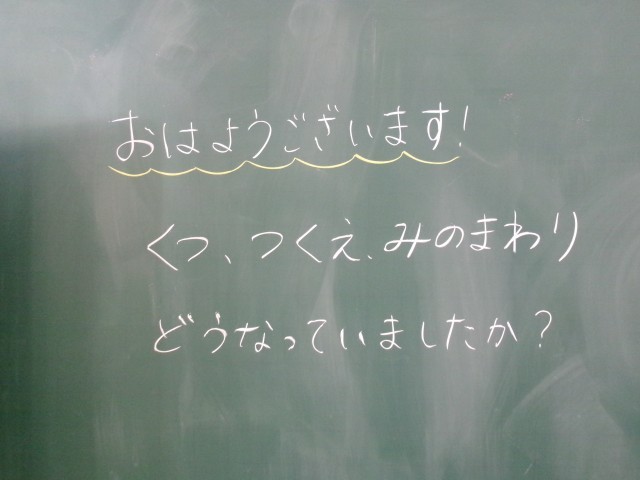 おはようございます!
くつ、つくえ、みのまわり
どうなっていましたか?